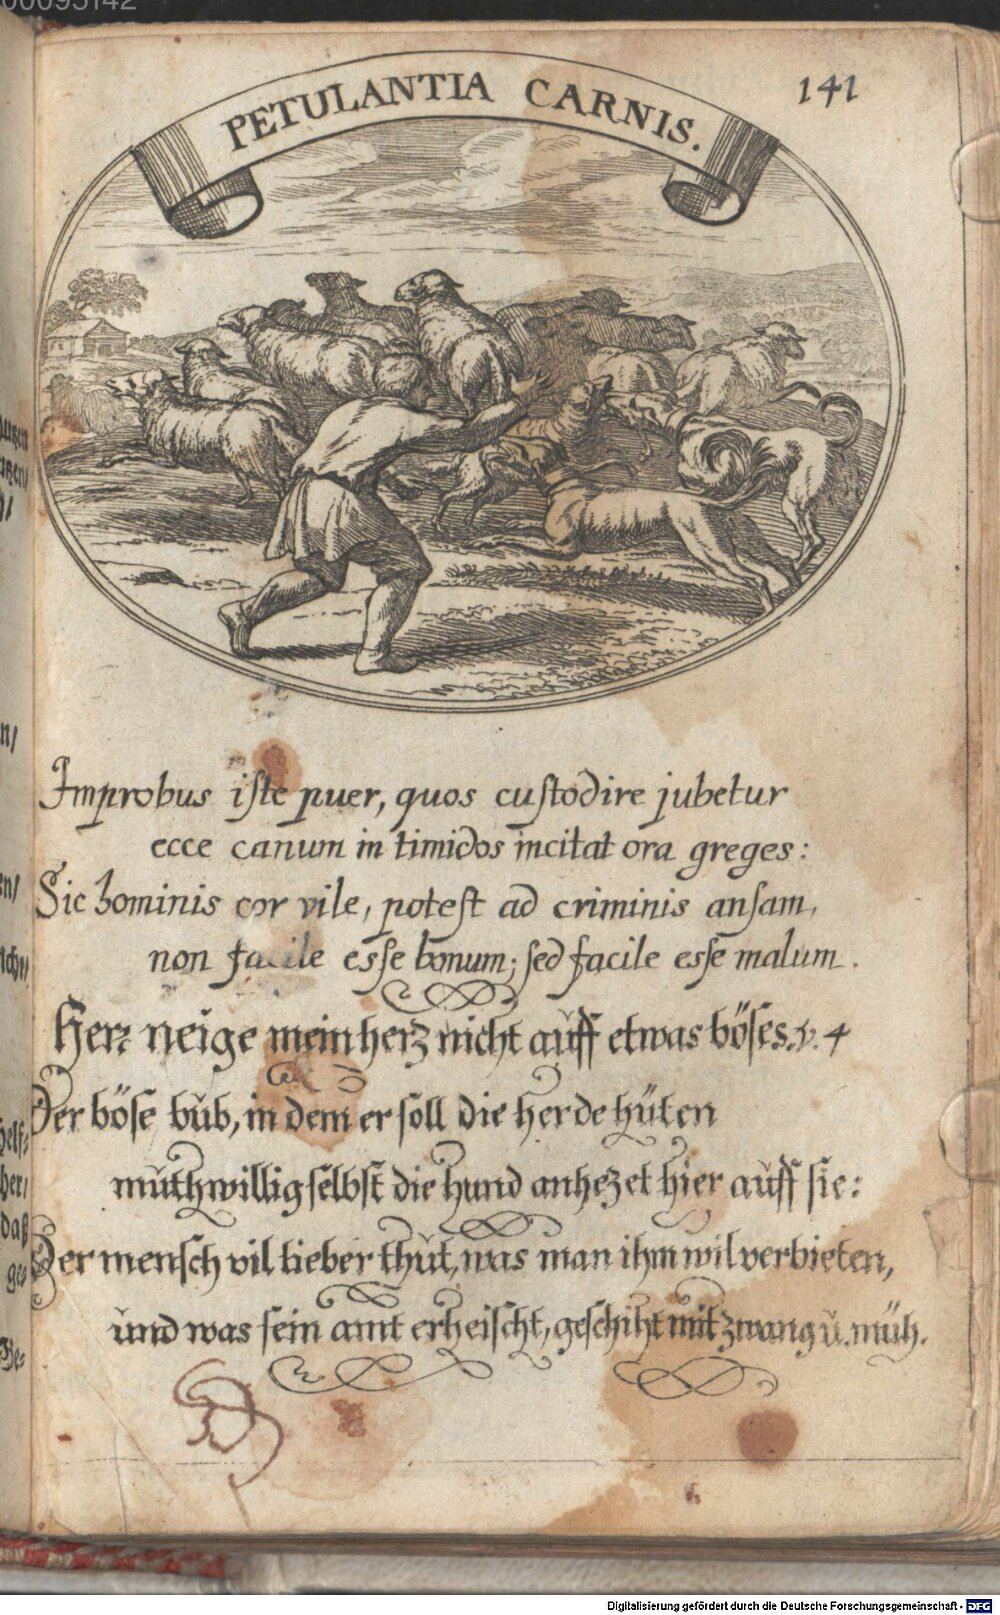 141
PETULANTIA CARNIS.
Improbus iſte puer, quos cuſtodire jubetur
ecce canum in timidos incitat ora greges:
Sic hominis cor vile, poteſt ad criminis anſam,
non facile eſſe bonum; ſed facile eſſe malum.
Herr neige mein herz nicht auff etwas böſes. v. 4
Der böſe bŭb, in dem er ſoll die herde hüten
mŭthwillig ſelbſt die hund anhezet hier auff ſie:
Der menſch vil lieber thŭt, was man ihm wil verbieten,
ŭnd was ſein amt erheiſcht, geſchiht mit zwang ŭ. müh.
Digitalisierung gefördert durch die Deutsche Forschungsgemeinschaft - DFG